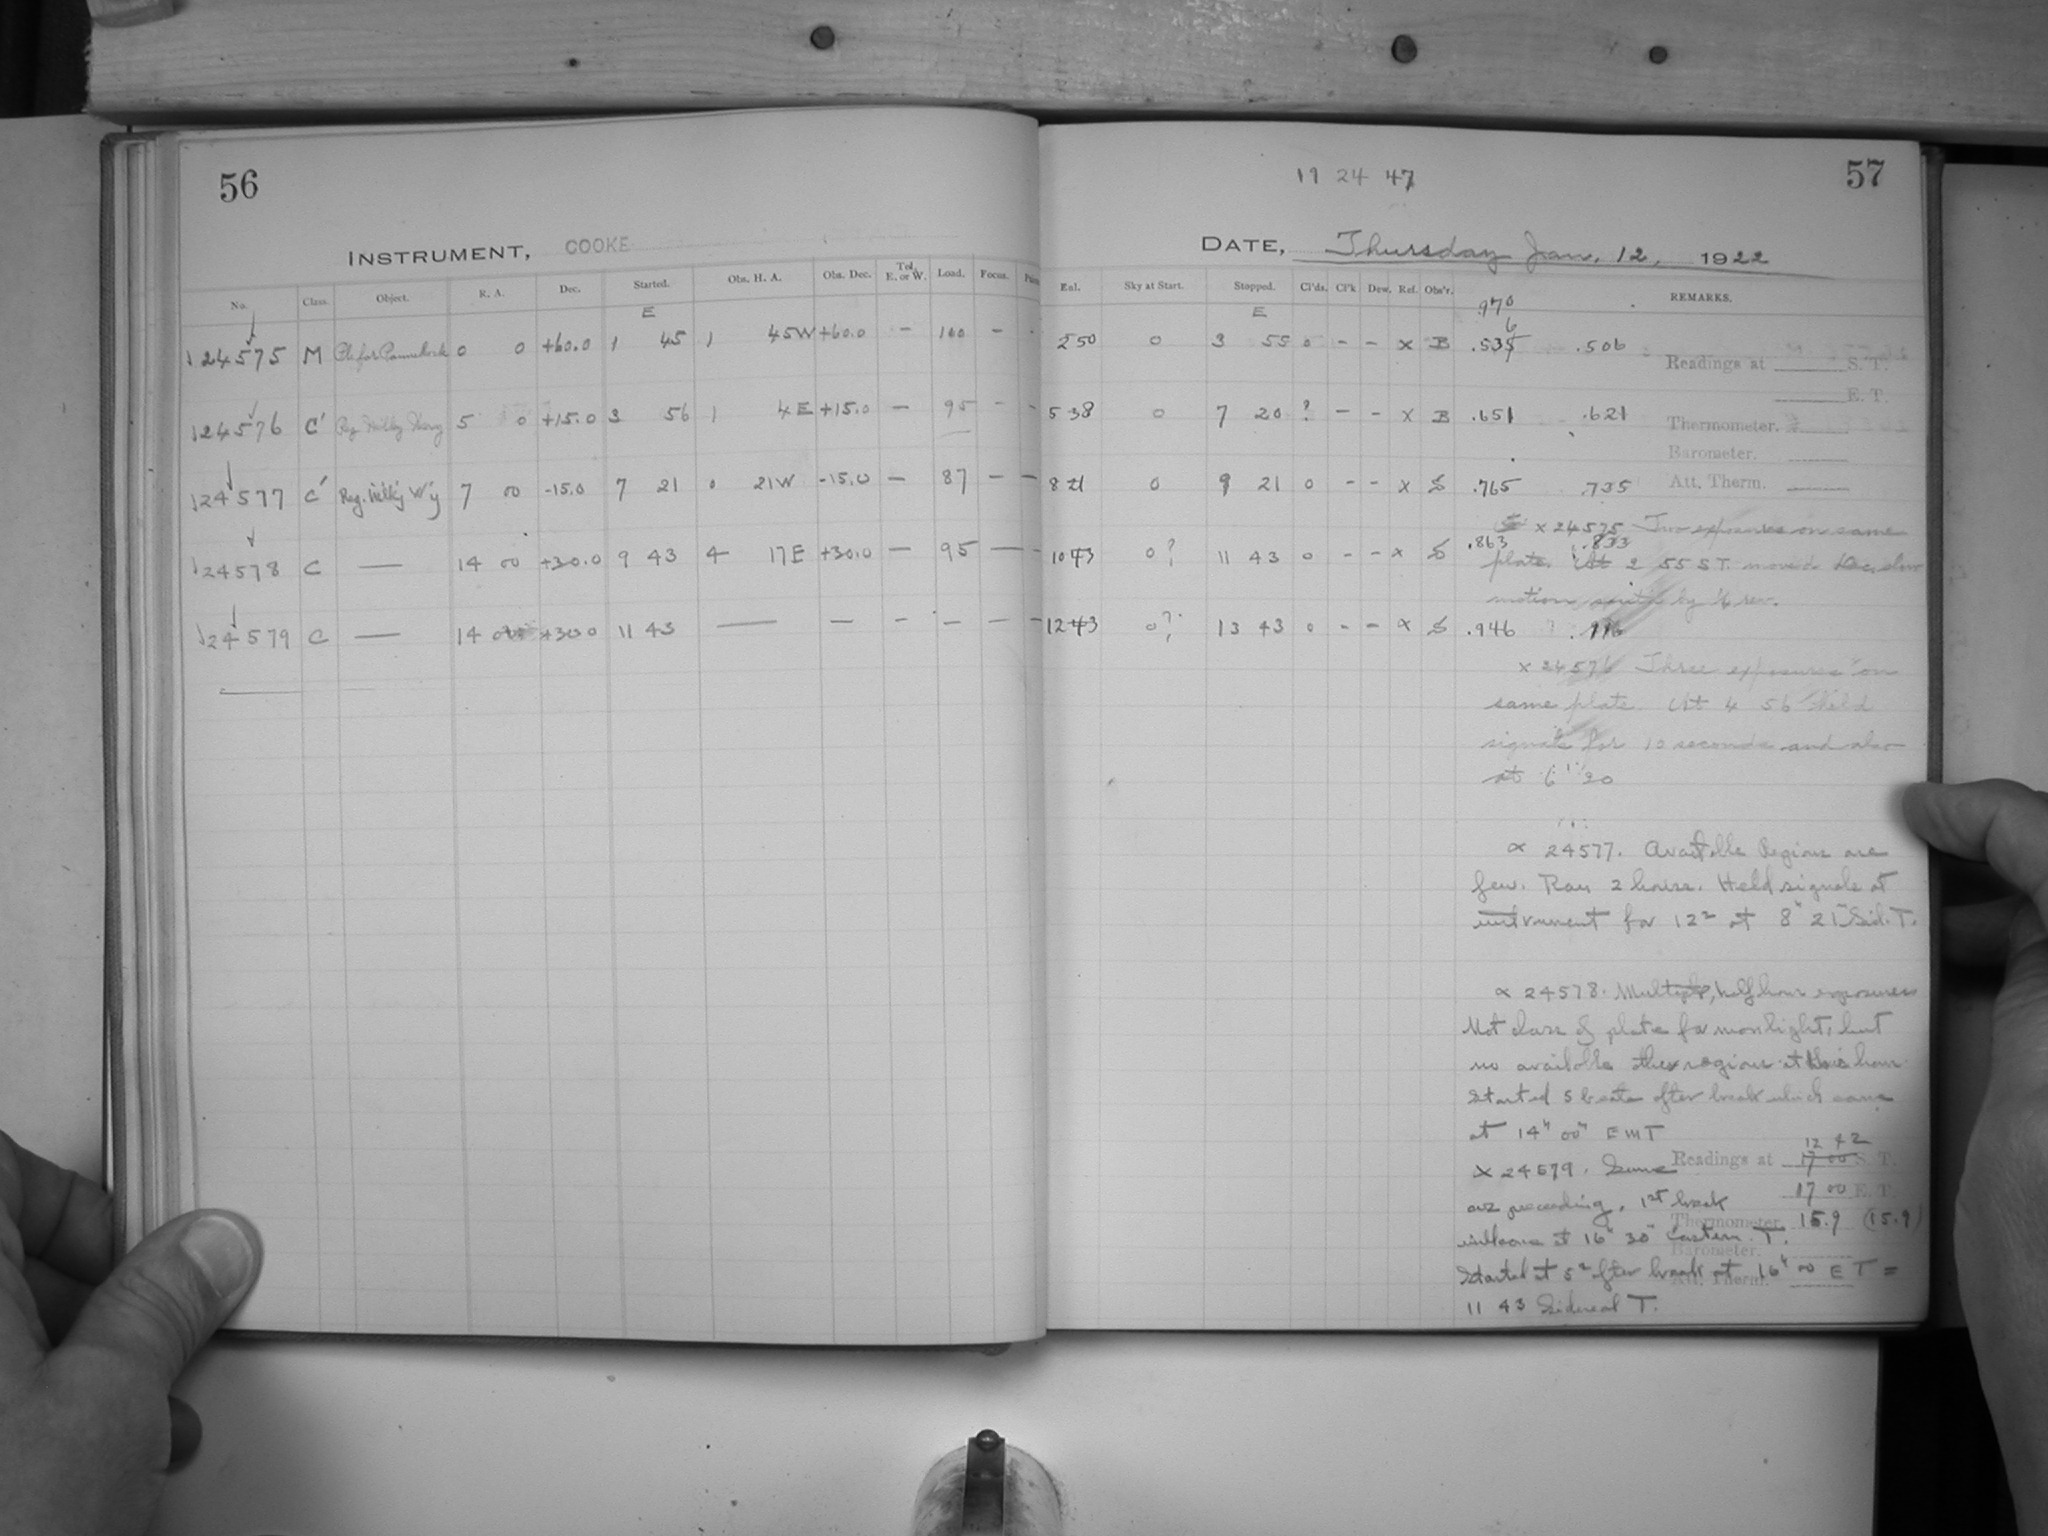 56
INSTRUMENT, COOKE
No. Class. Object. R. A. Dec. Started. Obs. H. A. Obs. Dec. Tel. E. or W. Load. Focus.
E
24575 M Pl. for Pannekoek 0 0 +60.0 1 45 1 45W +60.0 – 100 –
24576 C' Reg. Milky Way 5 0 +15.0 3 56 1 4E +15.0 – 95 –
24577 C' Reg. Milky W'y 7 00 -15.0 7 21 0 21W -15.0 – 87 – –
24578 C — 14 00 +30.0 9 43 4 17E +30.0 – 95 — –
24579 C — 14 00 +30.0 11 43 — — – – – –
19 24 47
57
DATE, Thursday Jan. 12, 1922
Eal. Sky at Start. Stopped. Cl'ds. Cl'k Dew. Ref. Obs'r. REMARKS.
E
.970
6
2 50 0 3 55 0 – – x B .535 .506
Readings at S. T.
E. T.
5 38 0 7 20 ? – – x B .651 .621
Thermometer.
Barometer.
8 21 0 9 21 0 – – x S .765 .735
Att. Therm.
x 24575 Two exposures on same
.863 .833
10 43 0? 11 43 0 – – x S
plate. At 2 55 S.T. moved Dec. slow
motion south by ½ rev.
12 43 0? 13 43 0 – – x S .946 .916
x 24576 Three exposures on
same plate. At 4 56 held
signals for 10 seconds and also
at 6 20
x 24577. Available Regions are
few. Ran 2 hours. Held signals at
instrument for 12s at 8h 21m Sid. T.
x 24578. Multiple, half hour exposures
Not class of plate for moonlight, but
no available other region at this hour
Started 5 beats after break which came
at 14h 00m E M T
12 42
Readings at 17 00 S. T.
x 24579. Same
17 00 E. T.
as preceeding, 1st break
Thermometer. 15.9 (15.9)
will come at 16h 30m Eastern T.
Barometer.
Started at 5s after break at 16h 00 E T =
Att. Therm.
11 43 Sidereal T.